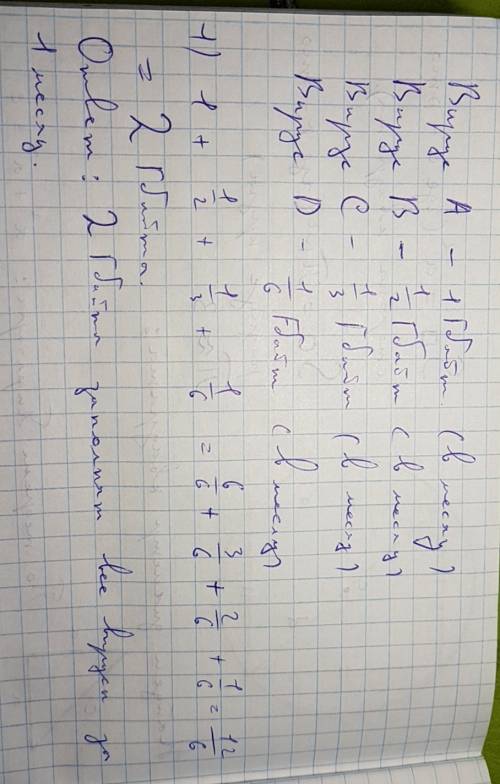 Вирус A - 1 Гбайт (в месяц)
Вирус B - 1/2 Гбайт (в месяц)
Вирус C - 1/3 Гбайт (в месяц)
Вирус D - 1/6 Гбайт (в месяц)
1) 1 + 1/2 + 1/3 + 1/6 = 6/6 + 3/6 + 2/6 + 1/6 = 12/6
= 2 Гбайта.
Ответ: 2 Гбайта заполнят все вирусы за
1 месяц.